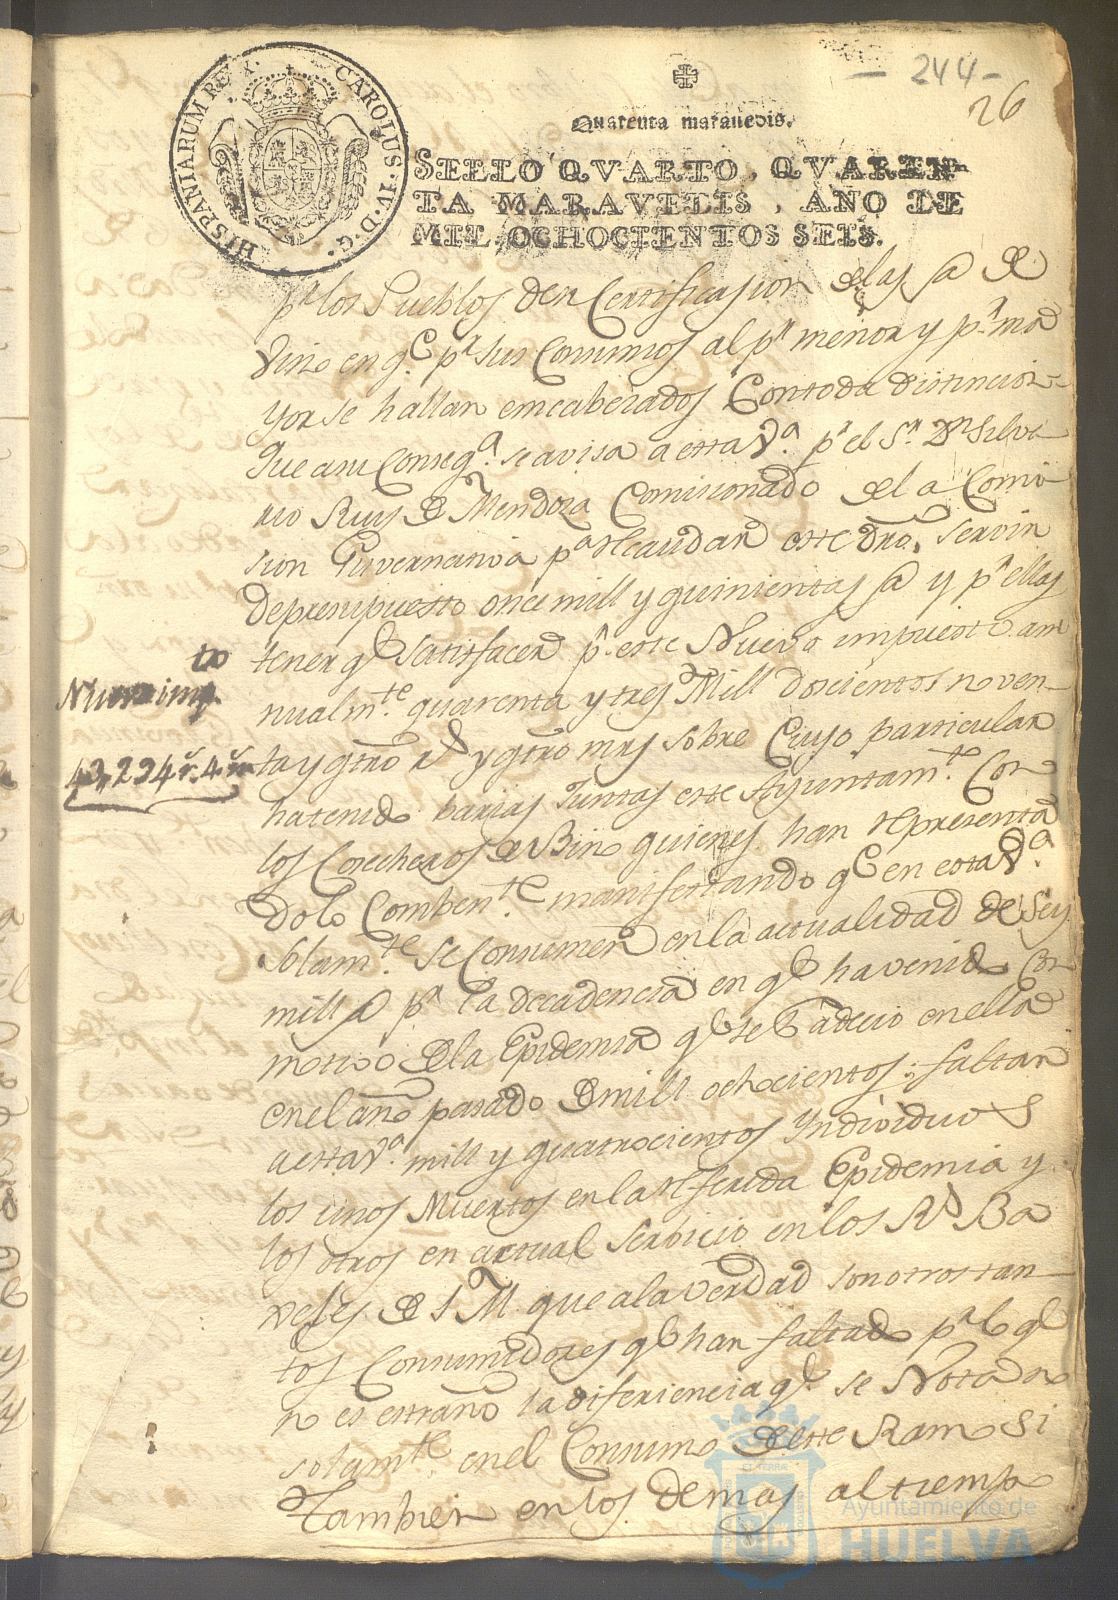 - 244 -
26
HISPANIARUM REX. CAROLUS. IV. D. G.
Quarenta maravedis.
SELLO QVARTO, QVAREN-
TA MARAVEDIS, AÑO DE
MIL OCHOCIENTOS SEIS.
pr. los Pueblos den Certificasion de las @ de
Vino en qe. pr. sus Consumos al pr. menor y pr. ma
yor se hallan emcabesados Con toda distincion
que a su Conseqa. se avisa a esta Va. pr. el Sr. Dn. Silve
rio Ruis de Mendoza Comisionado de la Comi
sion Guvernativa pa. Recaudar este dro. servin
de presupuesto once mill y quinientas @ y pr. ellas
tener qe. satisfacer pr. este Nuevo impuesto an
nualmte. quarenta y tres Mill doscientos noven-
ta y qtro rs. y qtro mrs sobre Cuyo particular
ha tenido barias Juntas este Ayuntamte. Con
los Cosecheros de Bino quienes han representa
dolo Combente. manifestando qe en esta Va.
solamte. se Consumen en la actualidad de seis
mill @ pr. la decadencia en qe. ha venido Con
motivo de la Epidemia qe. se padecio en ella
en el año pasado de mill ochocientos; faltan
a esta Va. mill y quatrocientos Individuos
los unos Muertos en la Referida Epidemia y
los otros en actual serbicio en los Rs. Ba
xeles de S M. que a la verdad son otros tan-
tos Consumidores qe. han faltado pr. lo qe.
no es estraño la diferiencia qe. se Nota no
solamte. en el Consumo de este Ramo si
tambien en los demas al tiempo
Nuevo imp
to
43,294 rs. 4 ms
Ayuntamiento de
HUELVA